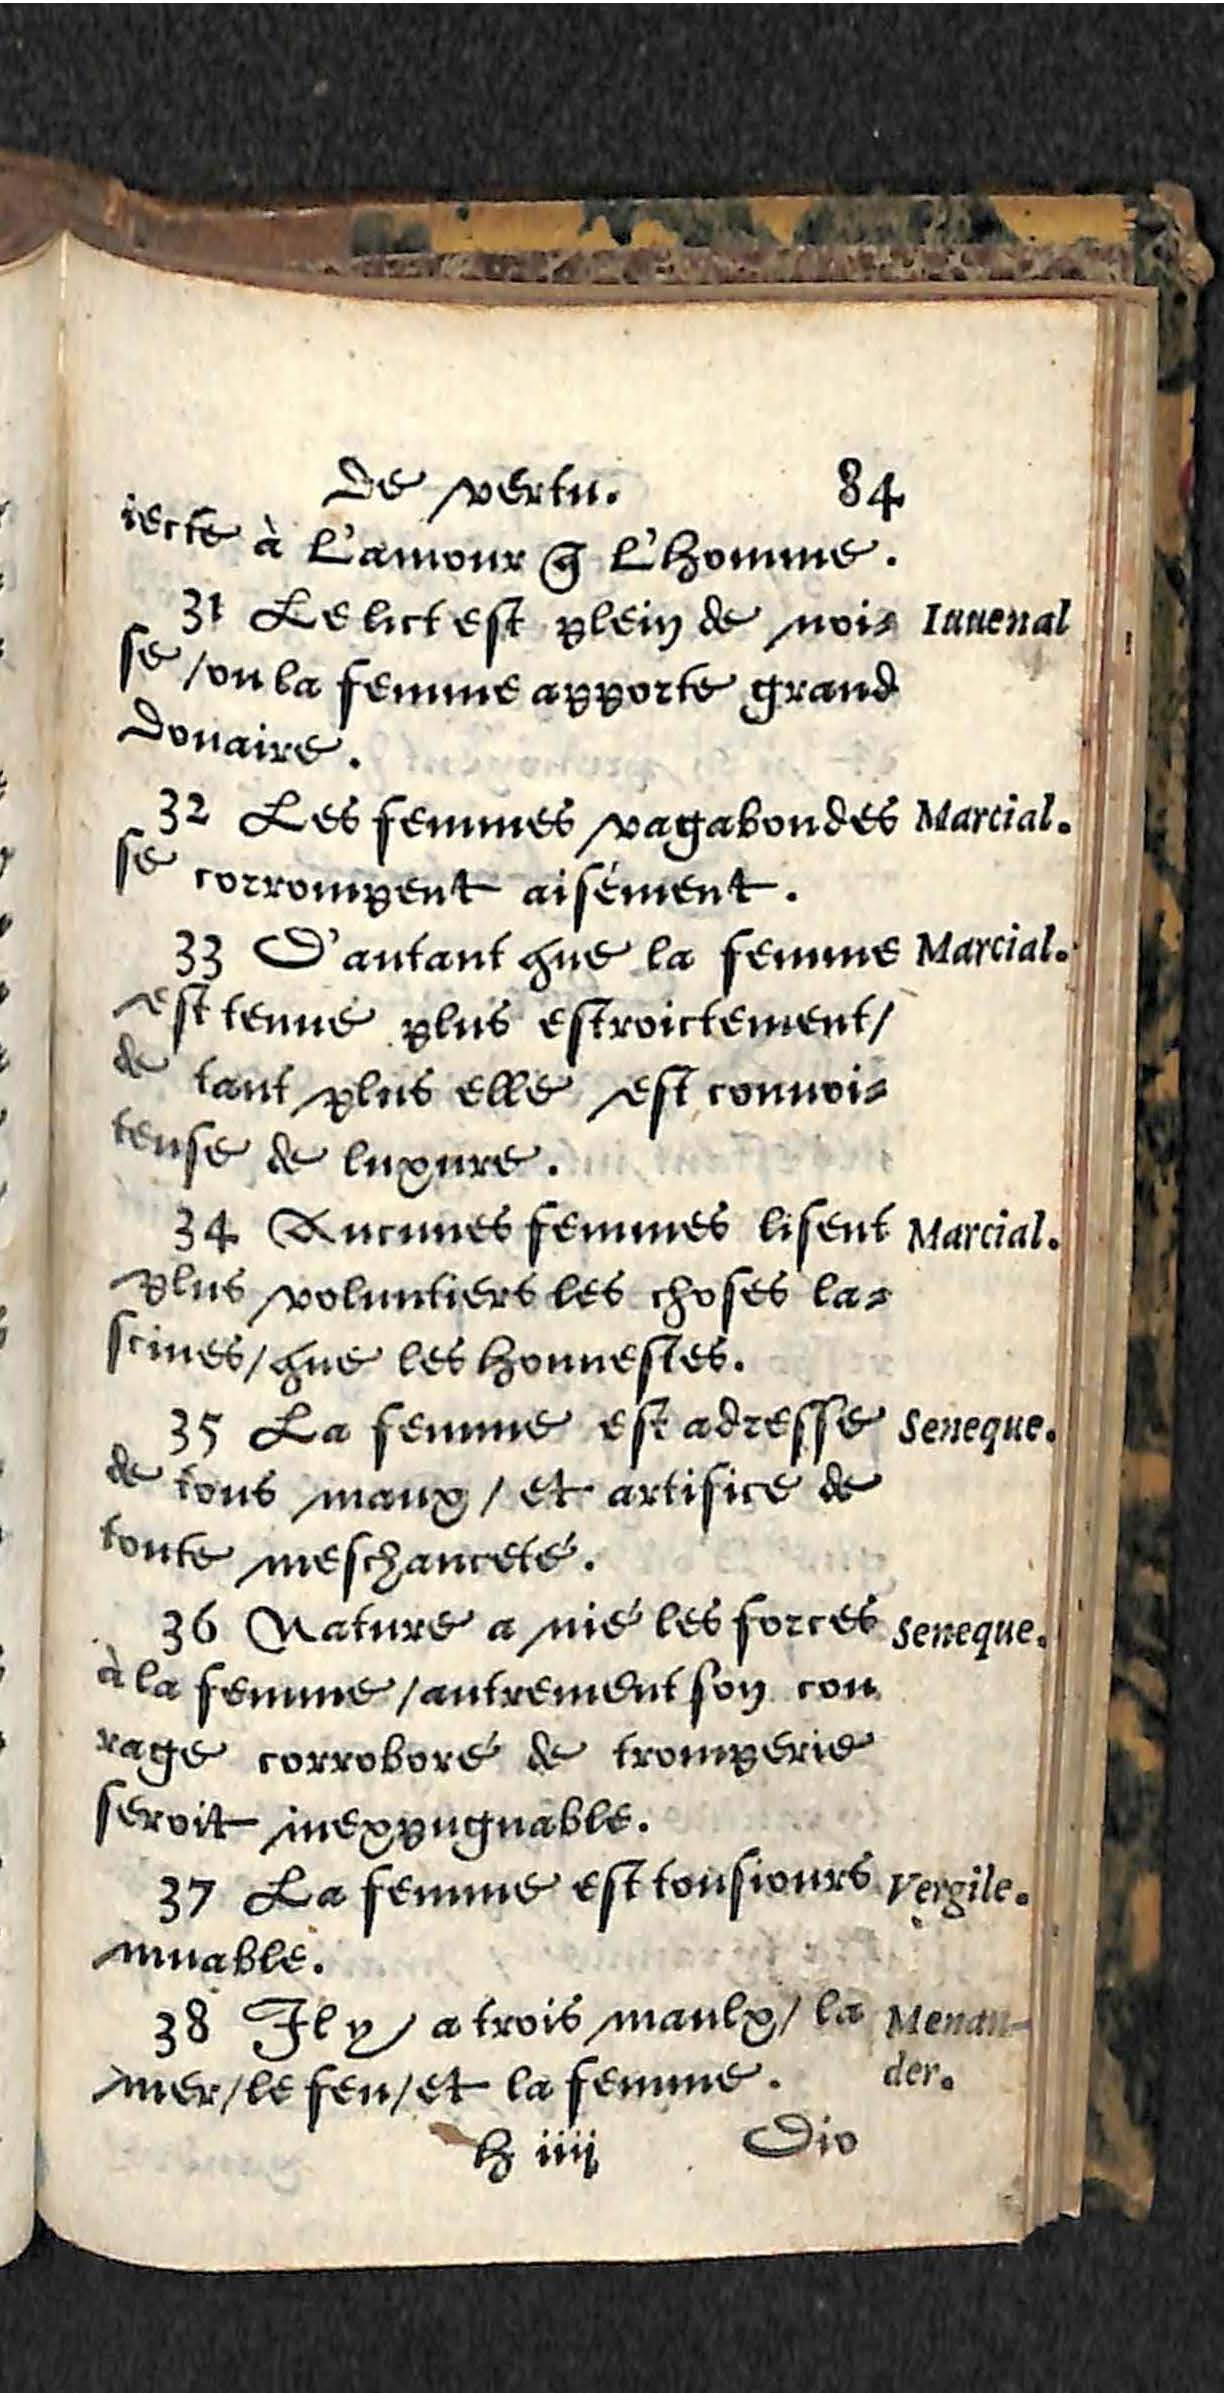 De vertu. 84
iecte à l'amour q̃ l'homme.
31 Le lict est plein de noi- Iuuenal
se / ou la femme apporte grand
douaire.
32 Les femmes vagabondes Marcial.
se corrompent aisément.
33 D'autant que la femme Marcial.
est tenue plus estroictement /
de tant plus elle est conuoi-
teuse de luxure.
34 Aucunes femmes lisent Marcial.
plus voluntiers les choses la-
sciues / que les honnestes.
35 La femme est adresse Seneque.
de tous maux / et artifice de
toute meschanceté.
36 Nature a nié les forces Seneque.
à la femme / autrement son cou
rage corroboré de tromperie
seroit inexpugnable.
37 La femme est tousiours Vergile.
muable.
38 Il y a trois maulx / la Menan-
mer / le feu / et la femme. der.
h iiij Dio